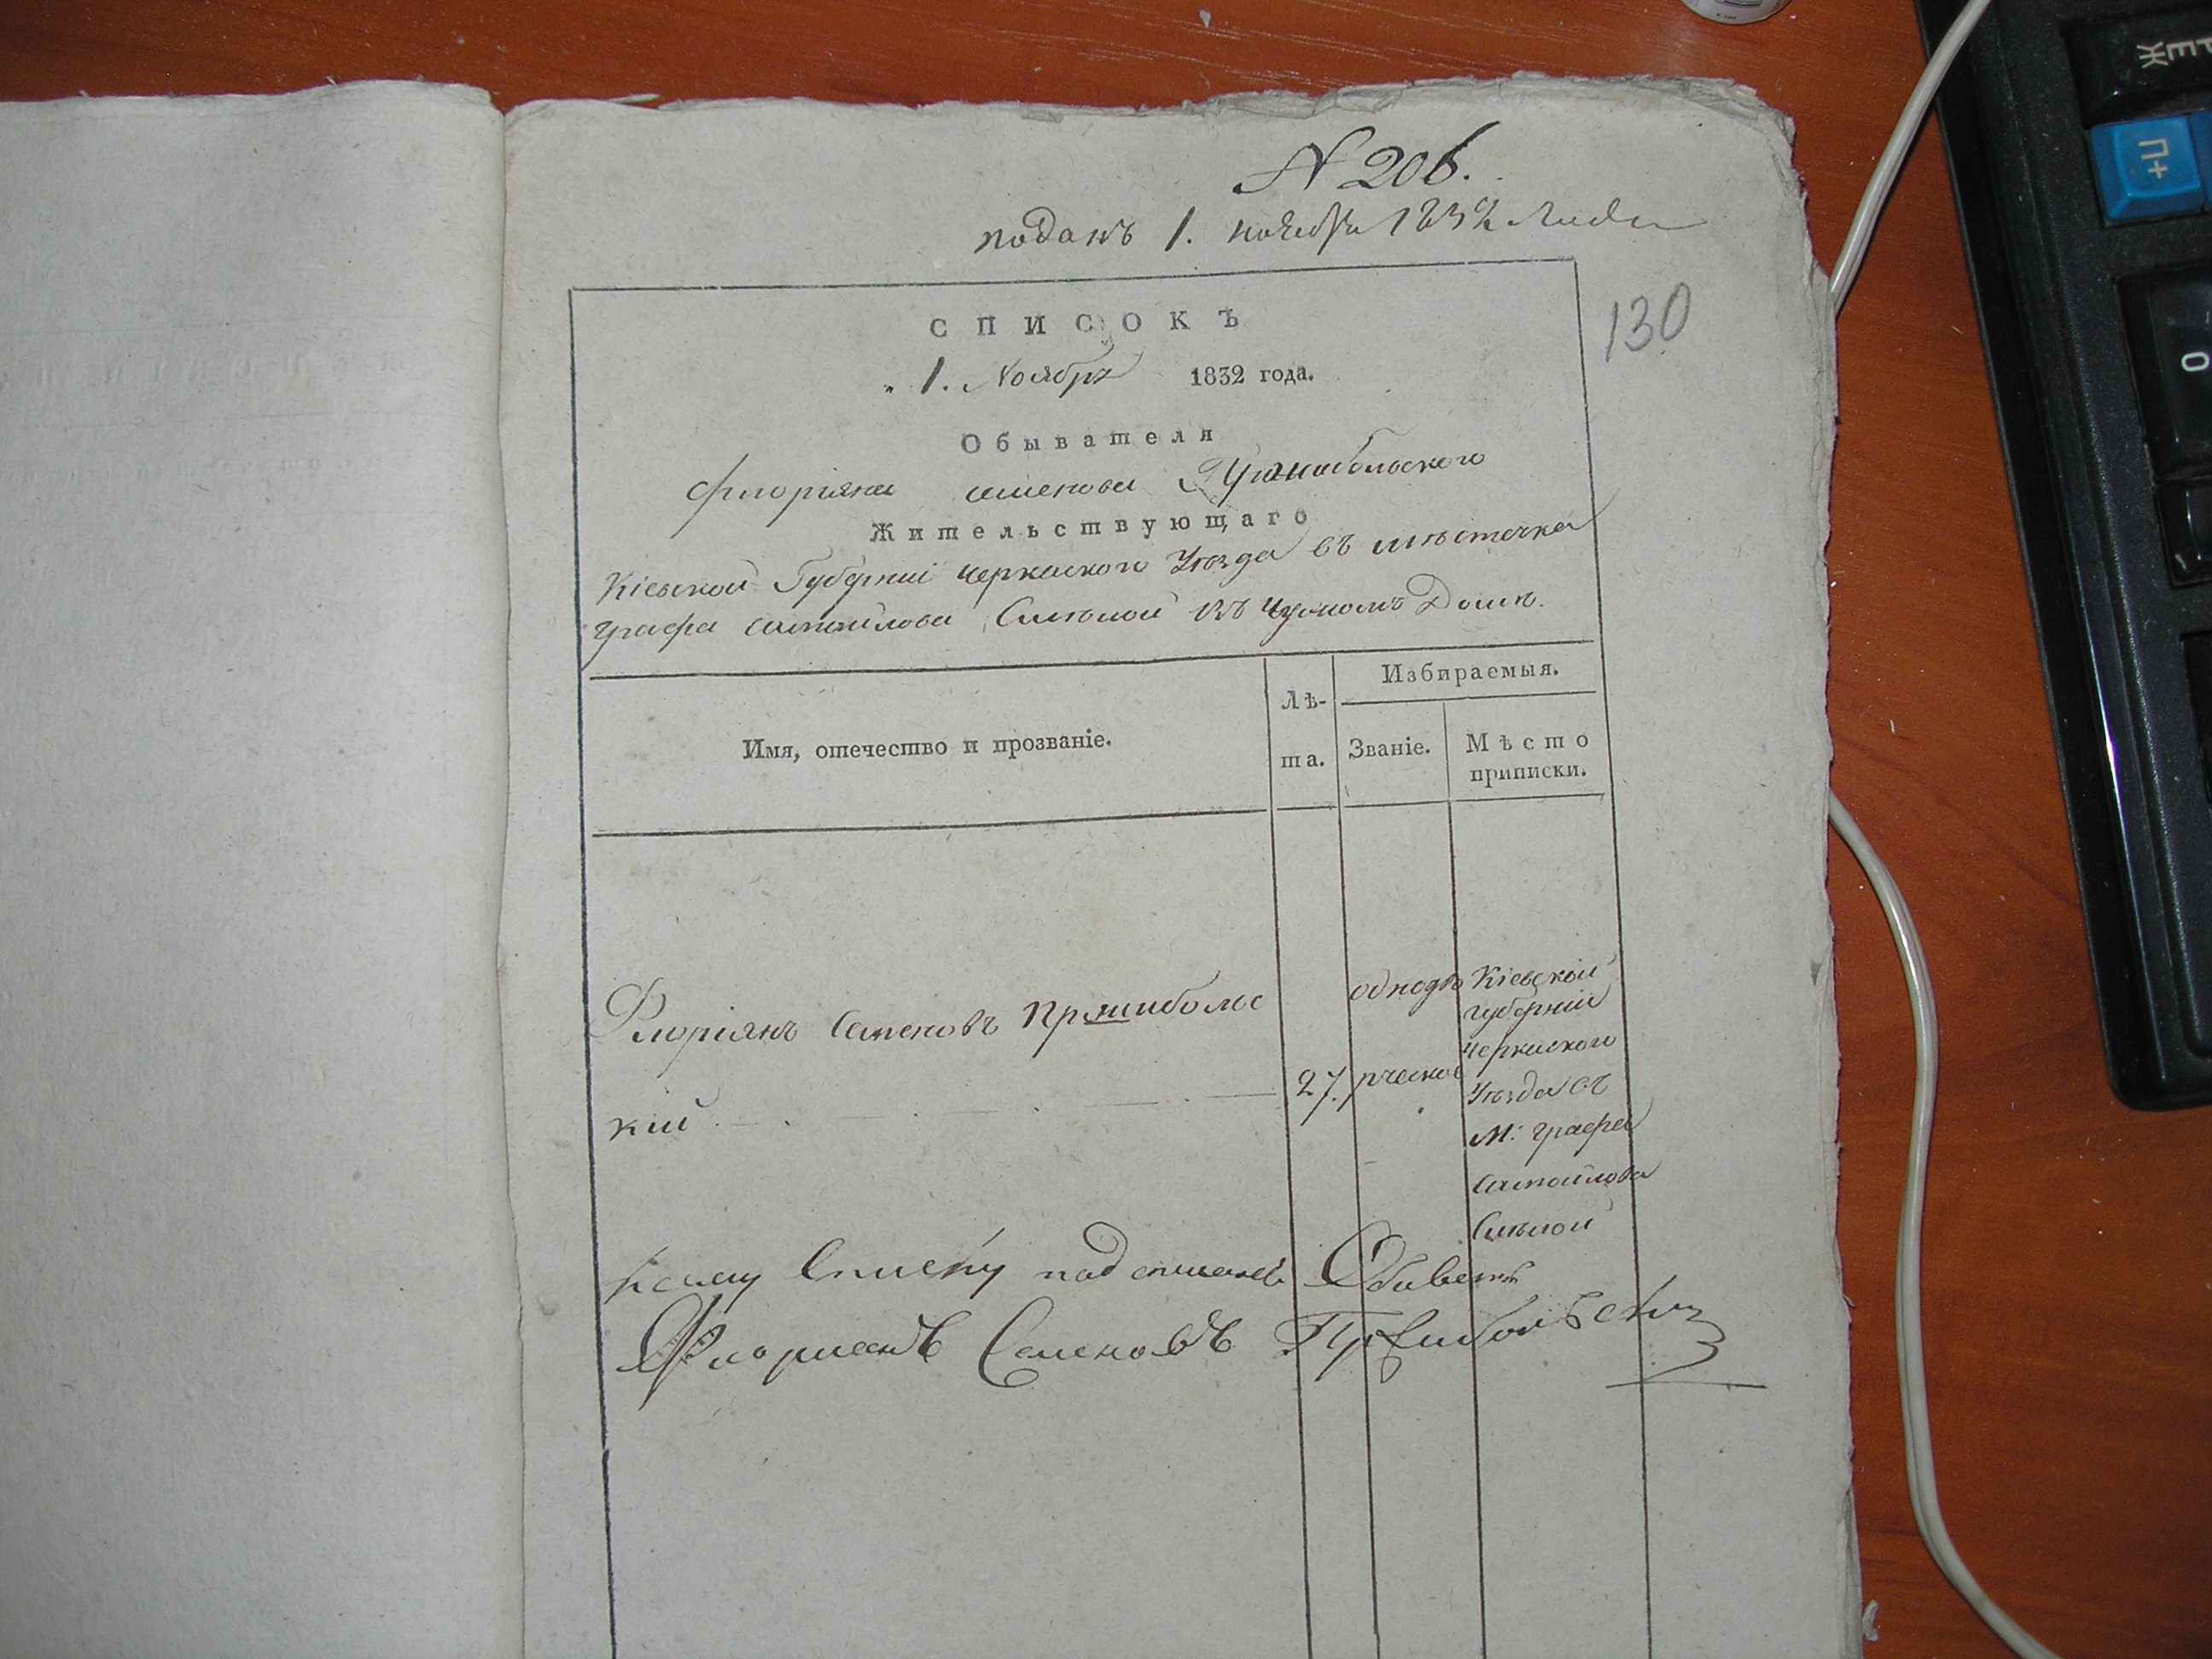 N 206.
поданъ 1. ноября 1832 года
130
СПИСОКЪ
1. Ноября 1832 года.
Обывателя
Флоріяна Семенова
Жительствующаго
Кіевской Губерніи Черкаского Уѣзда въ мѣстечка
Графа Самойлова Смѣлой въ Чужомъ Домѣ.
Имя, отечество и прозваніе.
Лѣ-
та.
Избираемыя.
Званіе.
Мѣсто
приписки.
Флоріянъ Семеновъ Пршибольс
кій
27.
однодво
рческое
Кіевской
губерніи
Черкаского
Уѣзда въ
М: Графа
Самойлова
Смѣлой
к сему Списку подписался
Флориянъ Семеновъ
Ж
Е
П+
0